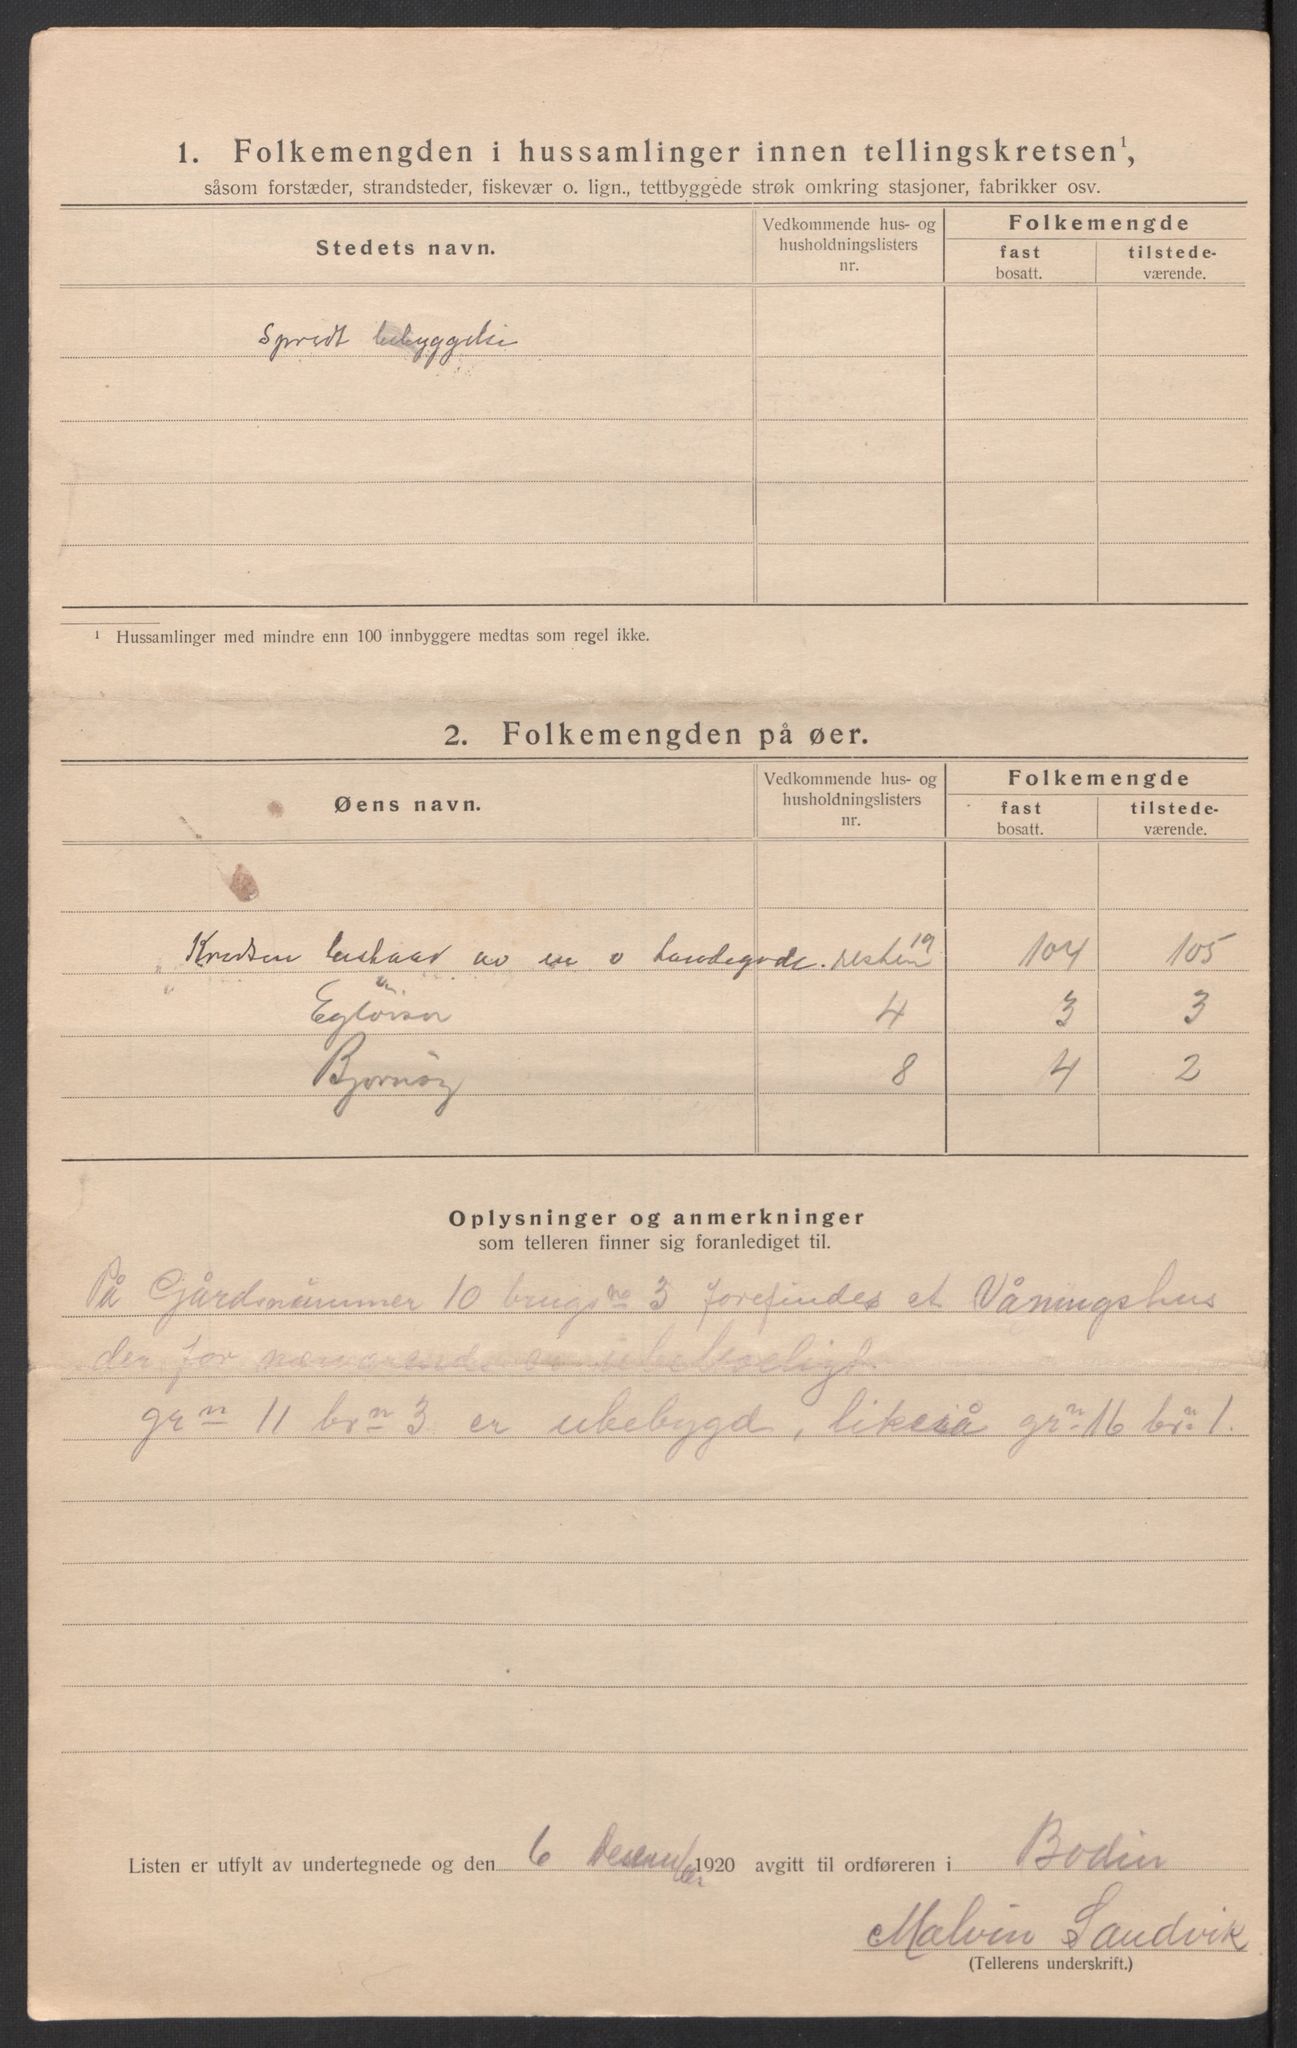 1. Folkemengden i hussamlinger innen tellingskretsen¹,
såsom forstæder, strandsteder, fiskevær o. lign., tettbyggede strøk omkring stasjoner, fabrikker osv.
Stedets navn.
Vedkommende hus- og husholdningslisters nr.
Folkemengde
fast bosatt.
tilstede-værende.
Spredt bebyggelse
¹ Hussamlinger med mindre enn 100 innbyggere medtas som regel ikke.
2. Folkemengden på øer.
Øens navn.
Vedkommende hus- og husholdningslisters nr.
Folkemengde
fast bosatt.
tilstede-værende.
Kredsen bestaar av en ø resten 19 104 105
4 3 3
Bjørnøy 8 4 2
Oplysninger og anmerkninger
som telleren finner sig foranlediget til.
På Gårdsnummer 10 brugs no 3 forefindes et Våningshus
der for nærværende er ubeboeligt
gr n 11 br n 3 er ubebygd, likeså gr n 16 br n 1.
Listen er utfylt av undertegnede og den 6 Desember 1920 avgitt til ordføreren i Bodin
Malvin Sandvik
(Tellerens underskrift.)